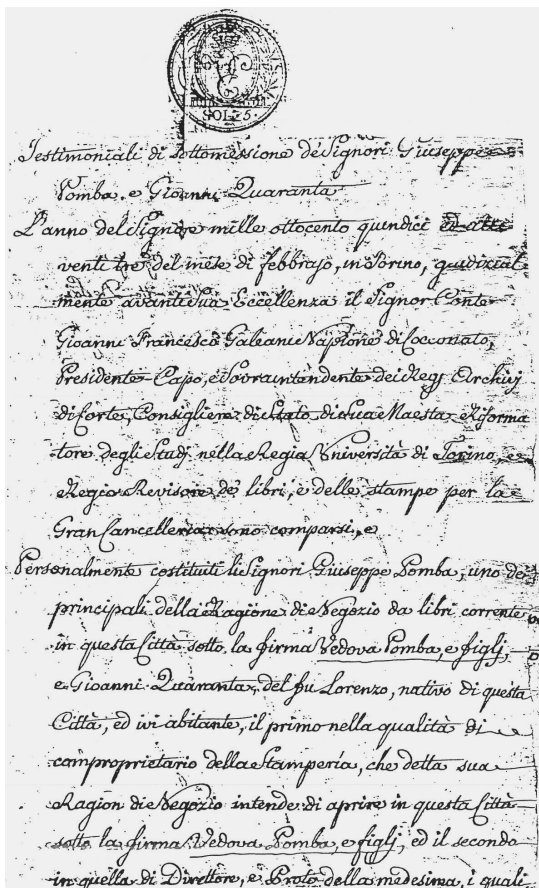 SOL. 25.
Testimoniali di sottomessione de' Signori Giuseppe
Pomba, e Gioanni Quaranta
L'anno del Signore mille ottocento quindici ed alli
venti tre del mese di febbrajo, in Torino, giudizial
mente avanti Sua Eccellenza il Signor Conte
Gioanni Francesco Galeani Napione di Cocconato,
Presidente Capo, e Sovraintendente dei Regj Archivj
di Corte, Consigliere di Stato di Sua Maestà, Riforma
tore degli Studj nella Regia Università di Torino, e
Regio Revisore de' libri, e delle stampe per la
Gran Cancelleria sono comparsi, e
Personalmente costituiti li Signori Giuseppe Pomba, uno dei
principali della Ragione di Negozio da libri corrente
in questa Città sotto la firma Vedova Pomba, e figlj,
e Gioanni Quaranta, del fu Lorenzo, nativo di questa
Città, ed ivi abitante, il primo nella qualità di
comproprietario della Stamperia, che detta sua
Ragion di Negozio intende di aprire in questa Città
sotto la firma Vedova Pomba, e figlj, ed il secondo
in quella di Direttore, e Proto della medesima, i quali